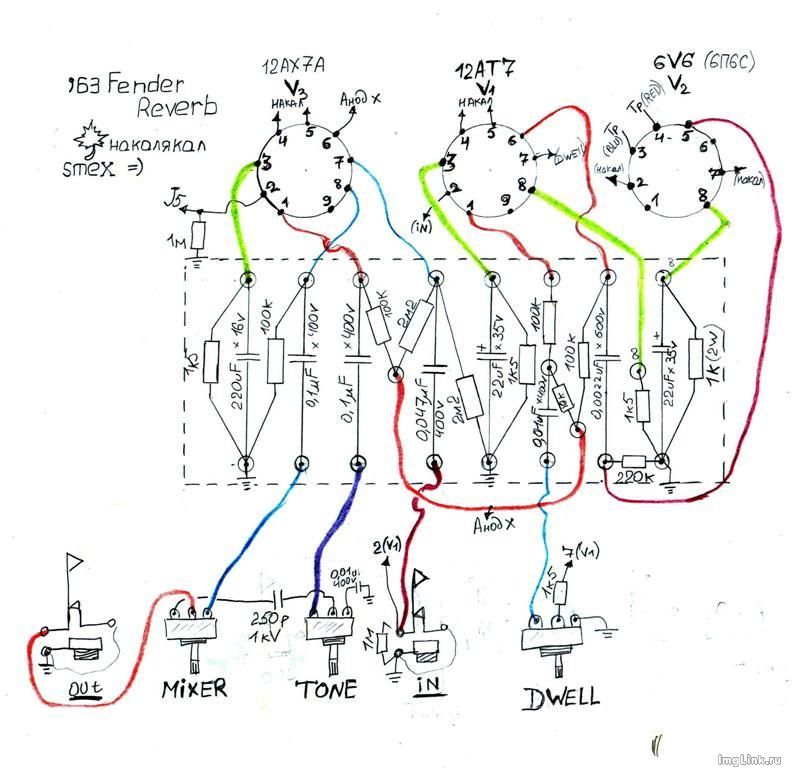 '63 Fender
Reverb
накалякал
smex =)
12AX7A
V3
накал
Анод X
4
5
6
3
7
2
8
1
9
J5
1M
12AT7
V1
накал
4
5
6
3
7
(DWELL)
2
8
(iN)
1
9
6V6 (6П6С)
V2
Тр(RED)
4
5
3
6
2
7
(накал)
(накал)
1
8
220uF × 16v
100k
0,1uF
×400v
0,1uF
×400v
100k
2M2
0,047uF
400v
2M2
22uF × 35v
1k5
100k
0,0022uF × 600v
100k
8
8
1k5
22uF × 35v
1k(2W)
220k
Анод X
2(V1)
7(V1)
1k5
0,01u
400v
250p
1kV
1M
OUT
MiXER
TONE
iN
DWELL
ImgLink.ru